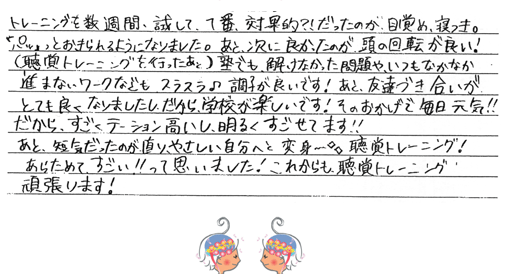 トレーニングも数週間、試して、1番、効果的?!だったのが、目覚め、寝つき。
パッとおきられるようになりました。あと、次に良かったのが、頭の回転が良い!
(聴覚トレーニングを行ったあと)塾でも、解けなかった問題や、いつもなかなか
進まないワークなども、スラスラ♪調子が良いです!あと、友達づき合いが
とても良くなりましたし、だから、学校が楽しいです!そのおかげで毎日元気!!
だから、すごくテーション高いし、明るくすごせてます!!
あと、短気だったのが直り、やさしい自分へと変身〜 聴覚トレーニング!
あらためて、すごい!!って思いました!これからも、聴覚トレーニング
頑張ります!